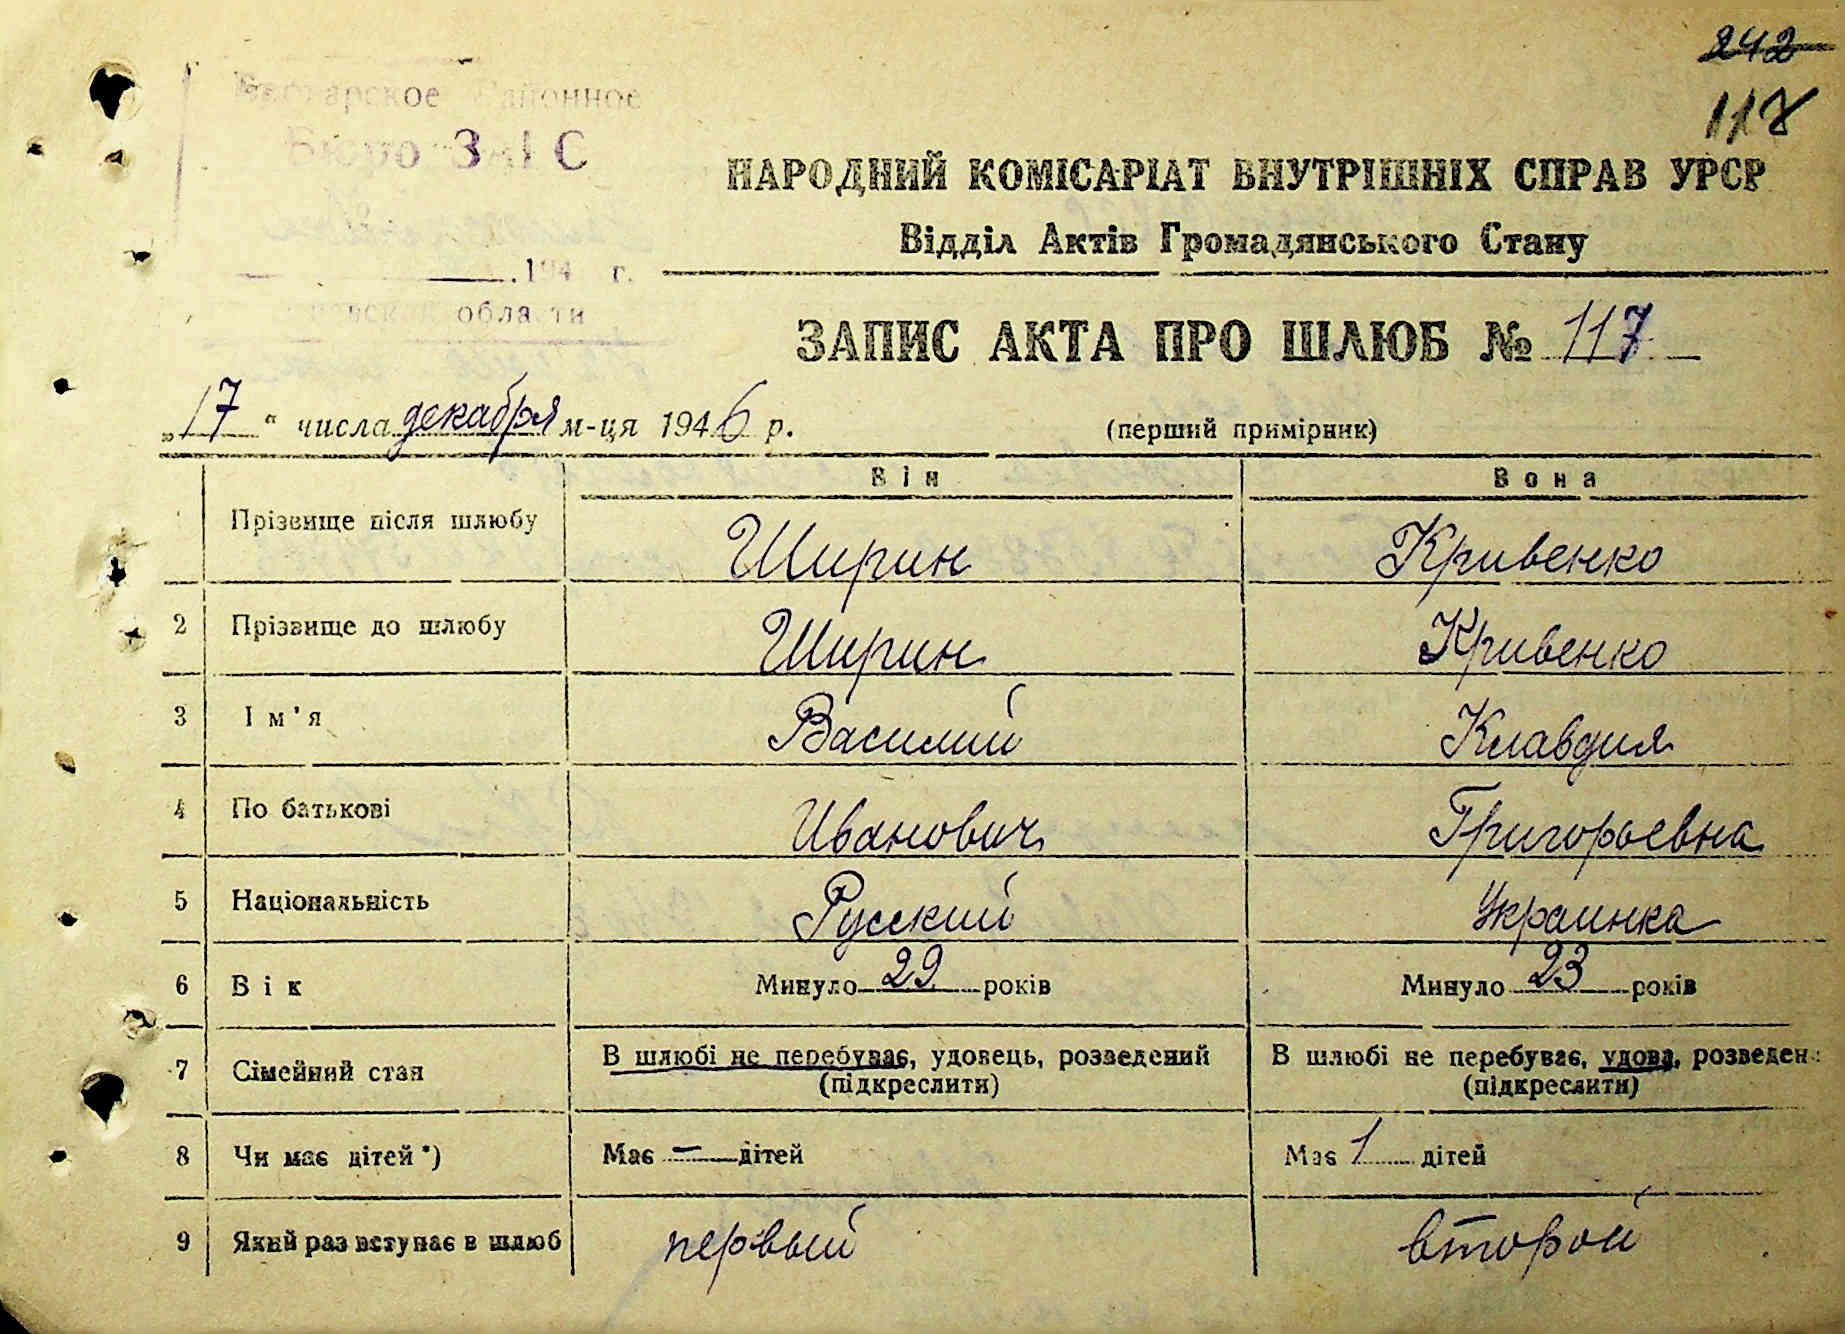 242
117
Районное
Бюро ЗАГС
194 г.
области
НАРОДНИЙ КОМІСАРІАТ ВНУТРІШНІХ СПРАВ УРСР
Відділ Актів Громадянського Стану
ЗАПИС АКТА ПРО ШЛЮБ № 117
„17“ числа декабря м-ця 1946 р. (перший примірник)
Він Вона
1 Прізвище після шлюбу Ширин Кривенко
2 Прізвище до шлюбу Ширин Кривенко
3 Ім'я Василий Клавдия
4 По батькові Иванович Григорьевна
5 Національність Русский Украинка
6 Вік Минуло 29 років Минуло 23 років
7 Сімейний стан В шлюбі не перебуває, удовець, розведений (підкреслити) В шлюбі не перебуває, удова, розведен (підкреслити)
8 Чи має дітей*) Має – дітей Має 1 дітей
9 Який раз вступає в шлюб первый второй